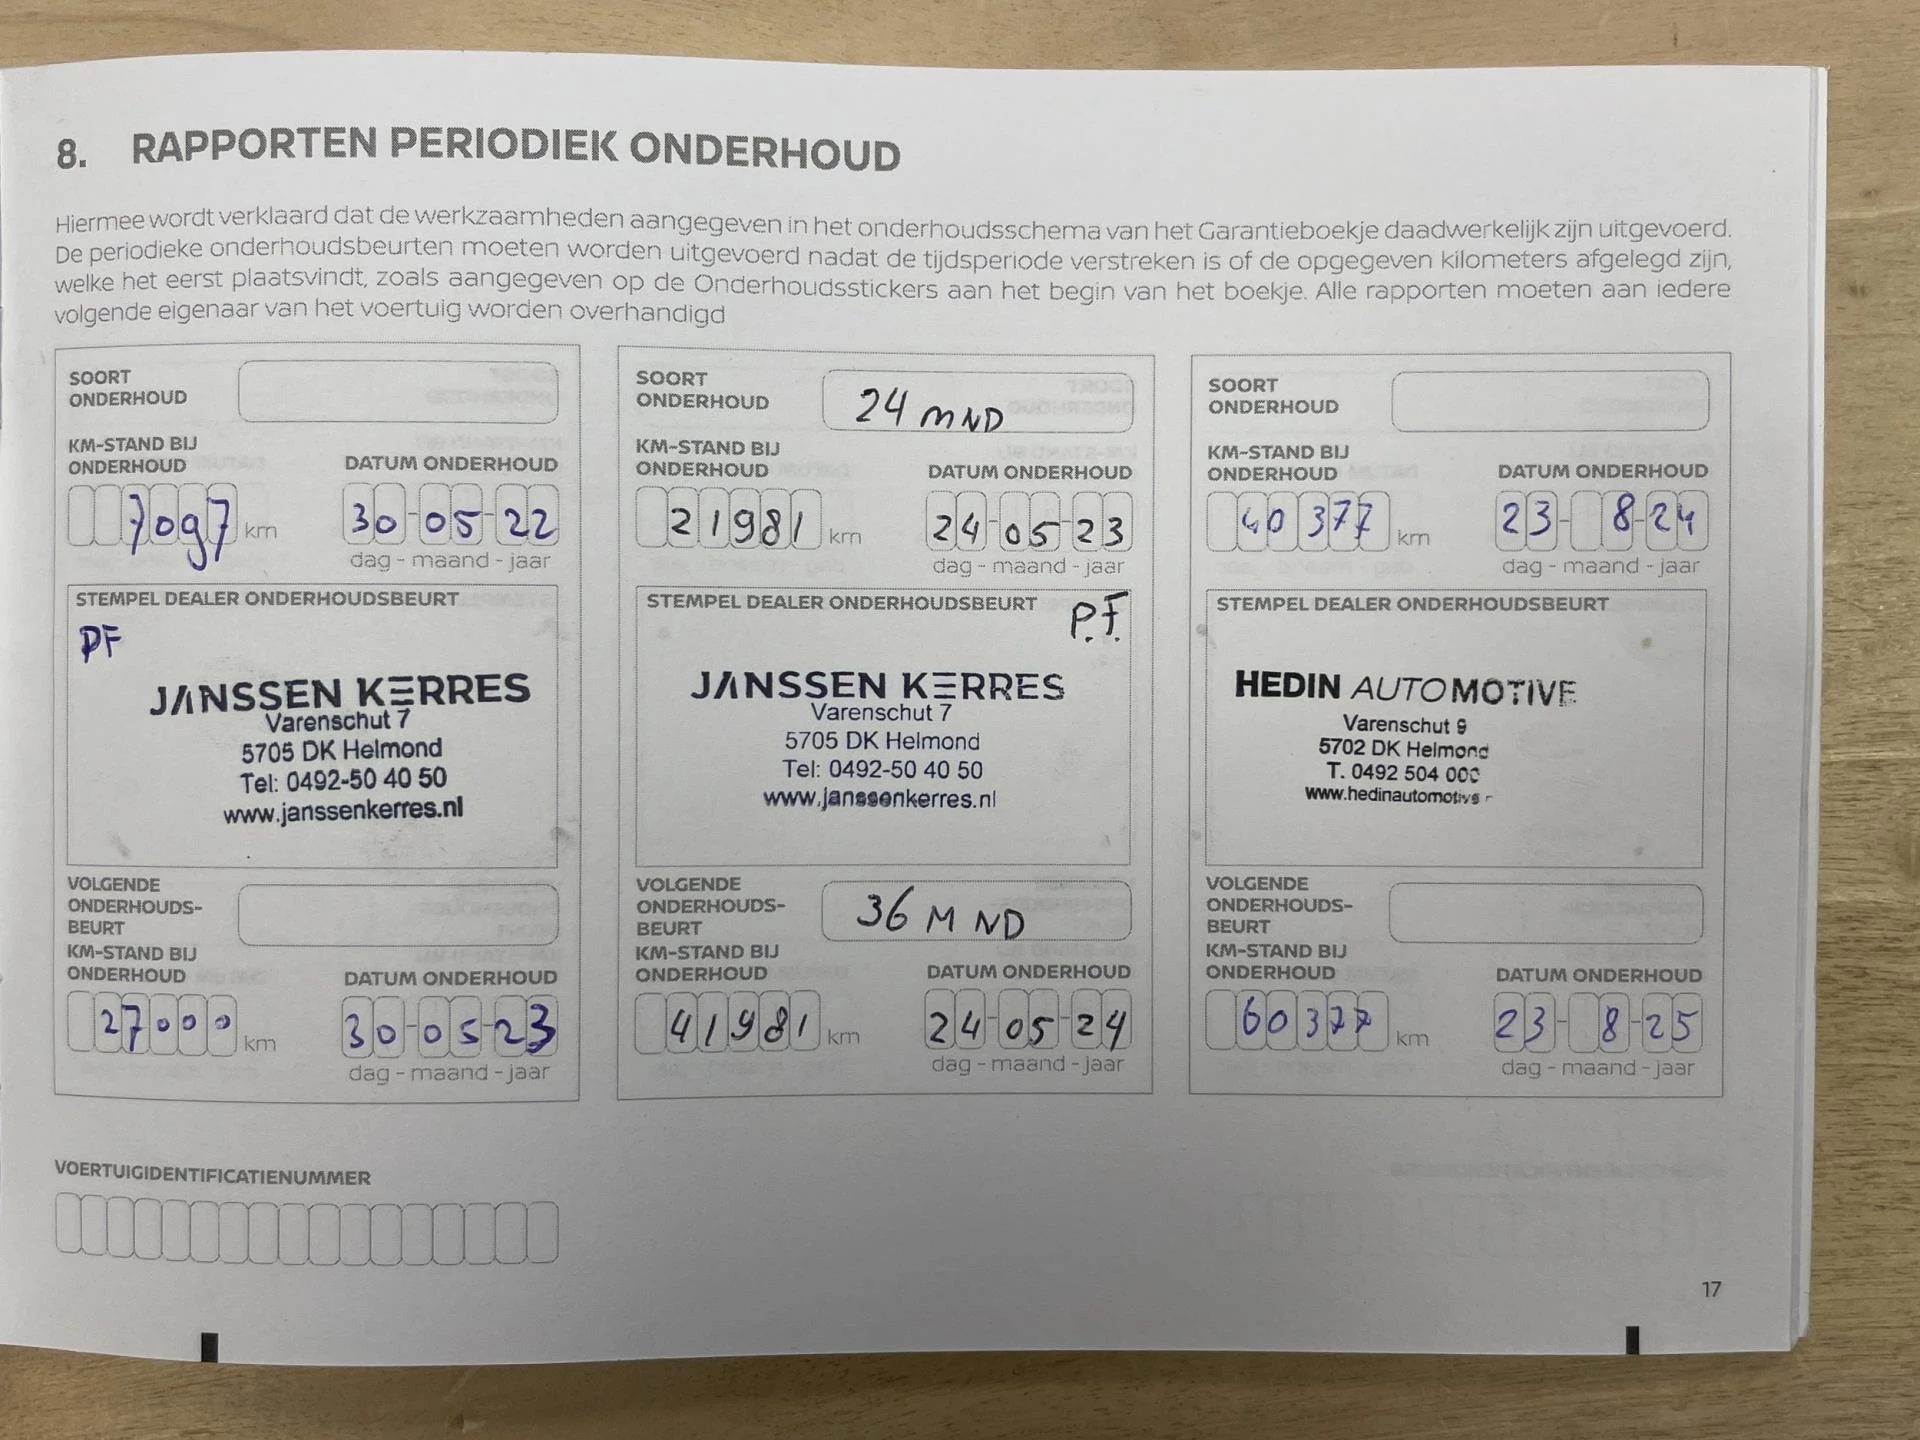 8. RAPPORTEN PERIODIEK ONDERHOUD
Hiermee wordt verklaard dat de werkzaamheden aangegeven in het onderhoudsschema van het Garantieboekje daadwerkelijk zijn uitgevoerd.
De periodieke onderhoudsbeurten moeten worden uitgevoerd nadat de tijdsperiode verstreken is of de opgegeven kilometers afgelegd zijn,
welke het eerst plaatsvindt, zoals aangegeven op de Onderhoudsstickers aan het begin van het boekje. Alle rapporten moeten aan iedere
volgende eigenaar van het voertuig worden overhandigd
SOORT
ONDERHOUD
KM-STAND BIJ
ONDERHOUD
DATUM ONDERHOUD
7097 km
30-05-22
dag - maand - jaar
STEMPEL DEALER ONDERHOUDSBEURT
PF
JANSSEN KERRES
Varenschut 7
5705 DK Helmond
Tel: 0492-50 40 50
www.janssenkerres.nl
VOLGENDE
ONDERHOUDS-
BEURT
KM-STAND BIJ
ONDERHOUD
DATUM ONDERHOUD
27000 km
30-05-23
dag - maand - jaar
SOORT
ONDERHOUD
24 MND
KM-STAND BIJ
ONDERHOUD
DATUM ONDERHOUD
21981 km
24-05-23
dag - maand - jaar
STEMPEL DEALER ONDERHOUDSBEURT
P.F.
JANSSEN KERRES
Varenschut 7
5705 DK Helmond
Tel: 0492-50 40 50
www.janssenkerres.nl
VOLGENDE
ONDERHOUDS-
BEURT
36 MND
KM-STAND BIJ
ONDERHOUD
DATUM ONDERHOUD
41981 km
24-05-24
dag - maand - jaar
SOORT
ONDERHOUD
KM-STAND BIJ
ONDERHOUD
DATUM ONDERHOUD
40377 km
23-8-24
dag - maand - jaar
STEMPEL DEALER ONDERHOUDSBEURT
HEDIN AUTOMOTIVE
Varenschut 9
5702 DK Helmond
T. 0492 504 000
www.hedinautomotive
VOLGENDE
ONDERHOUDS-
BEURT
KM-STAND BIJ
ONDERHOUD
DATUM ONDERHOUD
60377 km
23-8-25
dag - maand - jaar
VOERTUIGIDENTIFICATIENUMMER
17